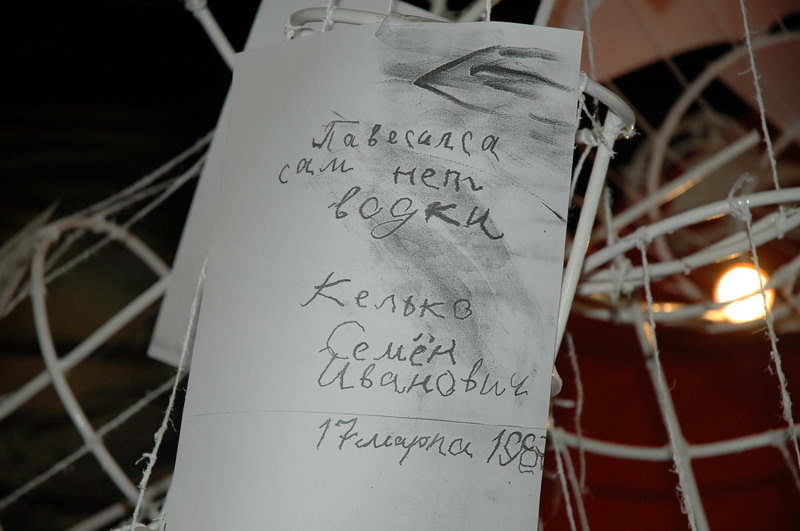 Павесился
сам нет
водки
Келько
Семён
Иванович
17 марта